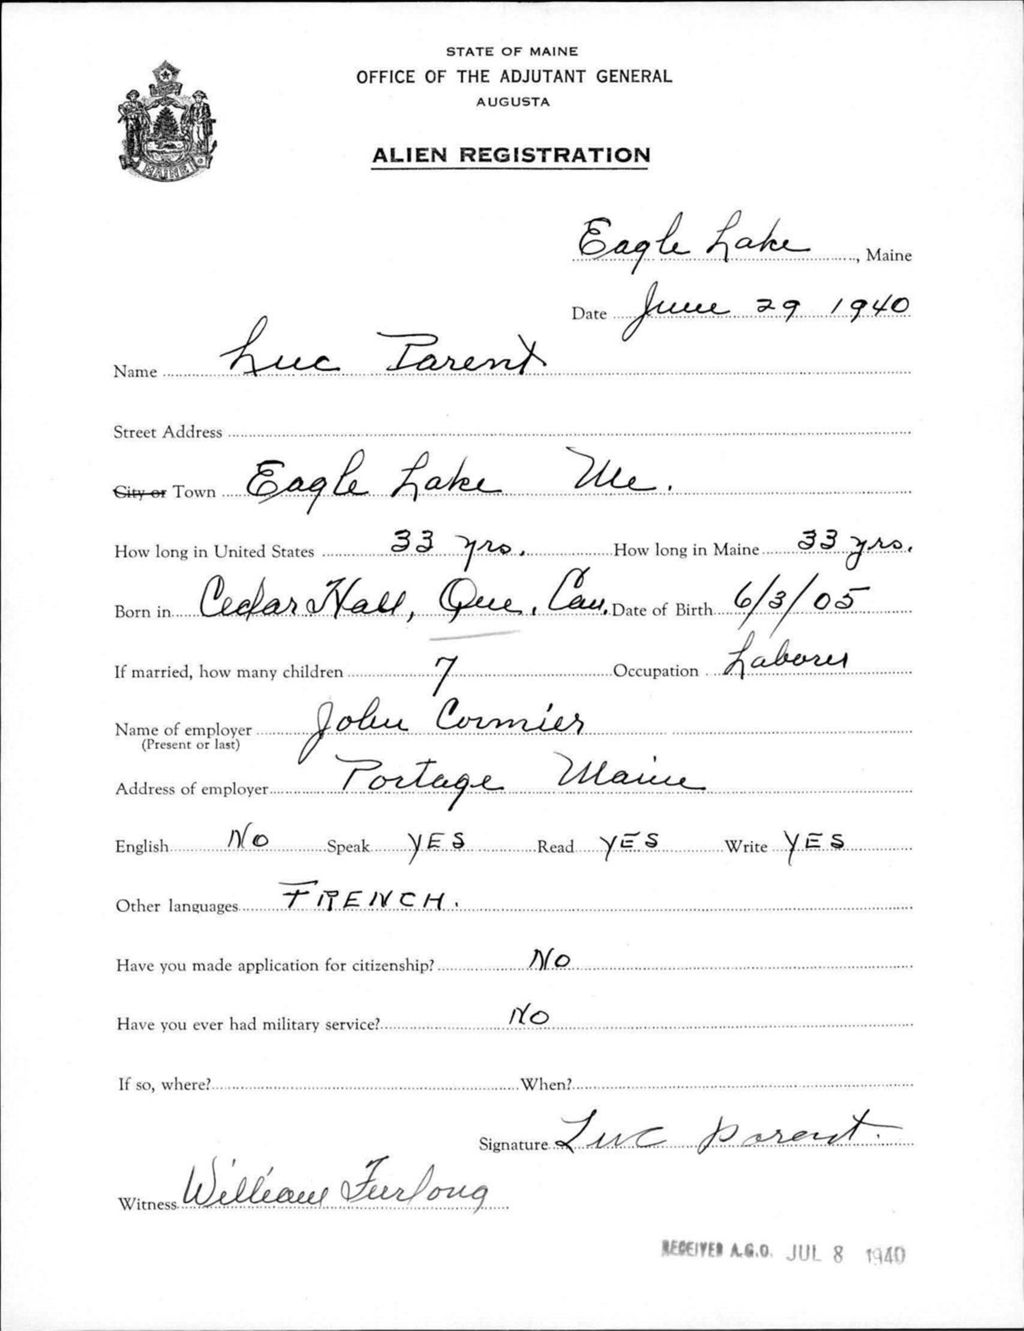 STATE OF MAINE
OFFICE OF THE ADJUTANT GENERAL
AUGUSTA
ALIEN REGISTRATION
MAINE
Eagle Lake, Maine
Date June 29 1940
Name Luc Parent
Street Address
City or Town Eagle Lake Me.
How long in United States 33 yrs. How long in Maine 33 yrs.
Born in Cedar Hall, Que. Can. Date of Birth 6/3/05
If married, how many children 7 Occupation Laborer
Name of employer John Cormier
(Present or last)
Address of employer Portage Maine
English No Speak YES Read YES Write YES
Other languages FRENCH.
Have you made application for citizenship? No
Have you ever had military service? No
If so, where? When?
Signature Luc Parent.
Witness William Furlong
RECEIVED A.G.O. JUL 8 1940